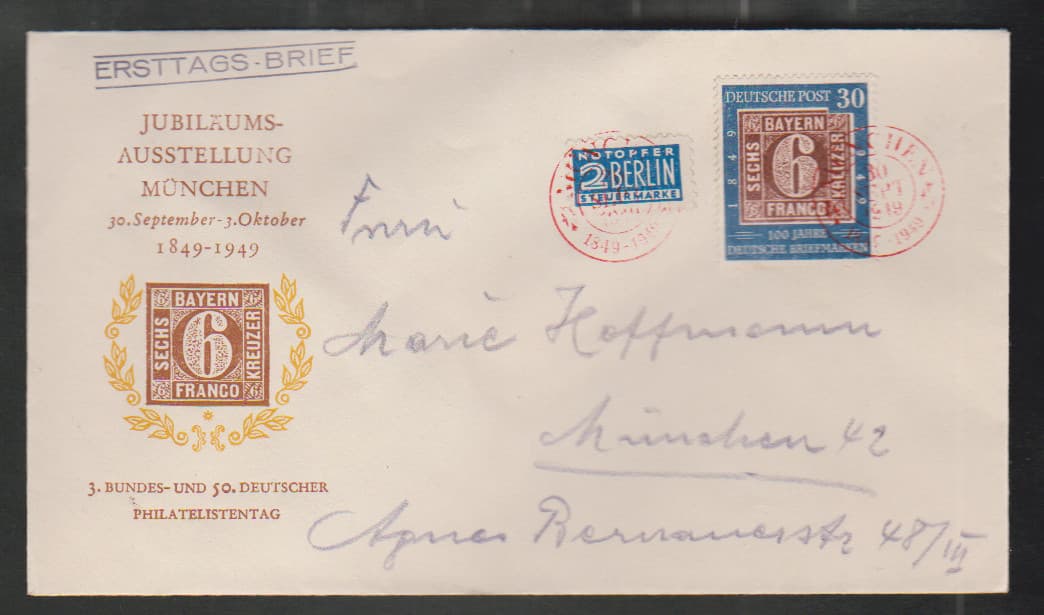 ERSTTAGS-BRIEF
JUBILÄUMS-
AUSSTELLUNG
MÜNCHEN
30. September - 3. Oktober
1849-1949
BAYERN
SECHS
6
KREUZER
FRANCO
3. BUNDES- UND 50. DEUTSCHER
PHILATELISTENTAG
NOTOPFER
2 BERLIN
STEUERMARKE
1849-1949
DEUTSCHE POST 30
1849
1949
BAYERN
SECHS
6
KREUZER
FRANCO
100 JAHRE
DEUTSCHE BRIEFMARKEN
30
1949
Marie Hoffmann
München 42
Agnes Bernauerstr 48/III